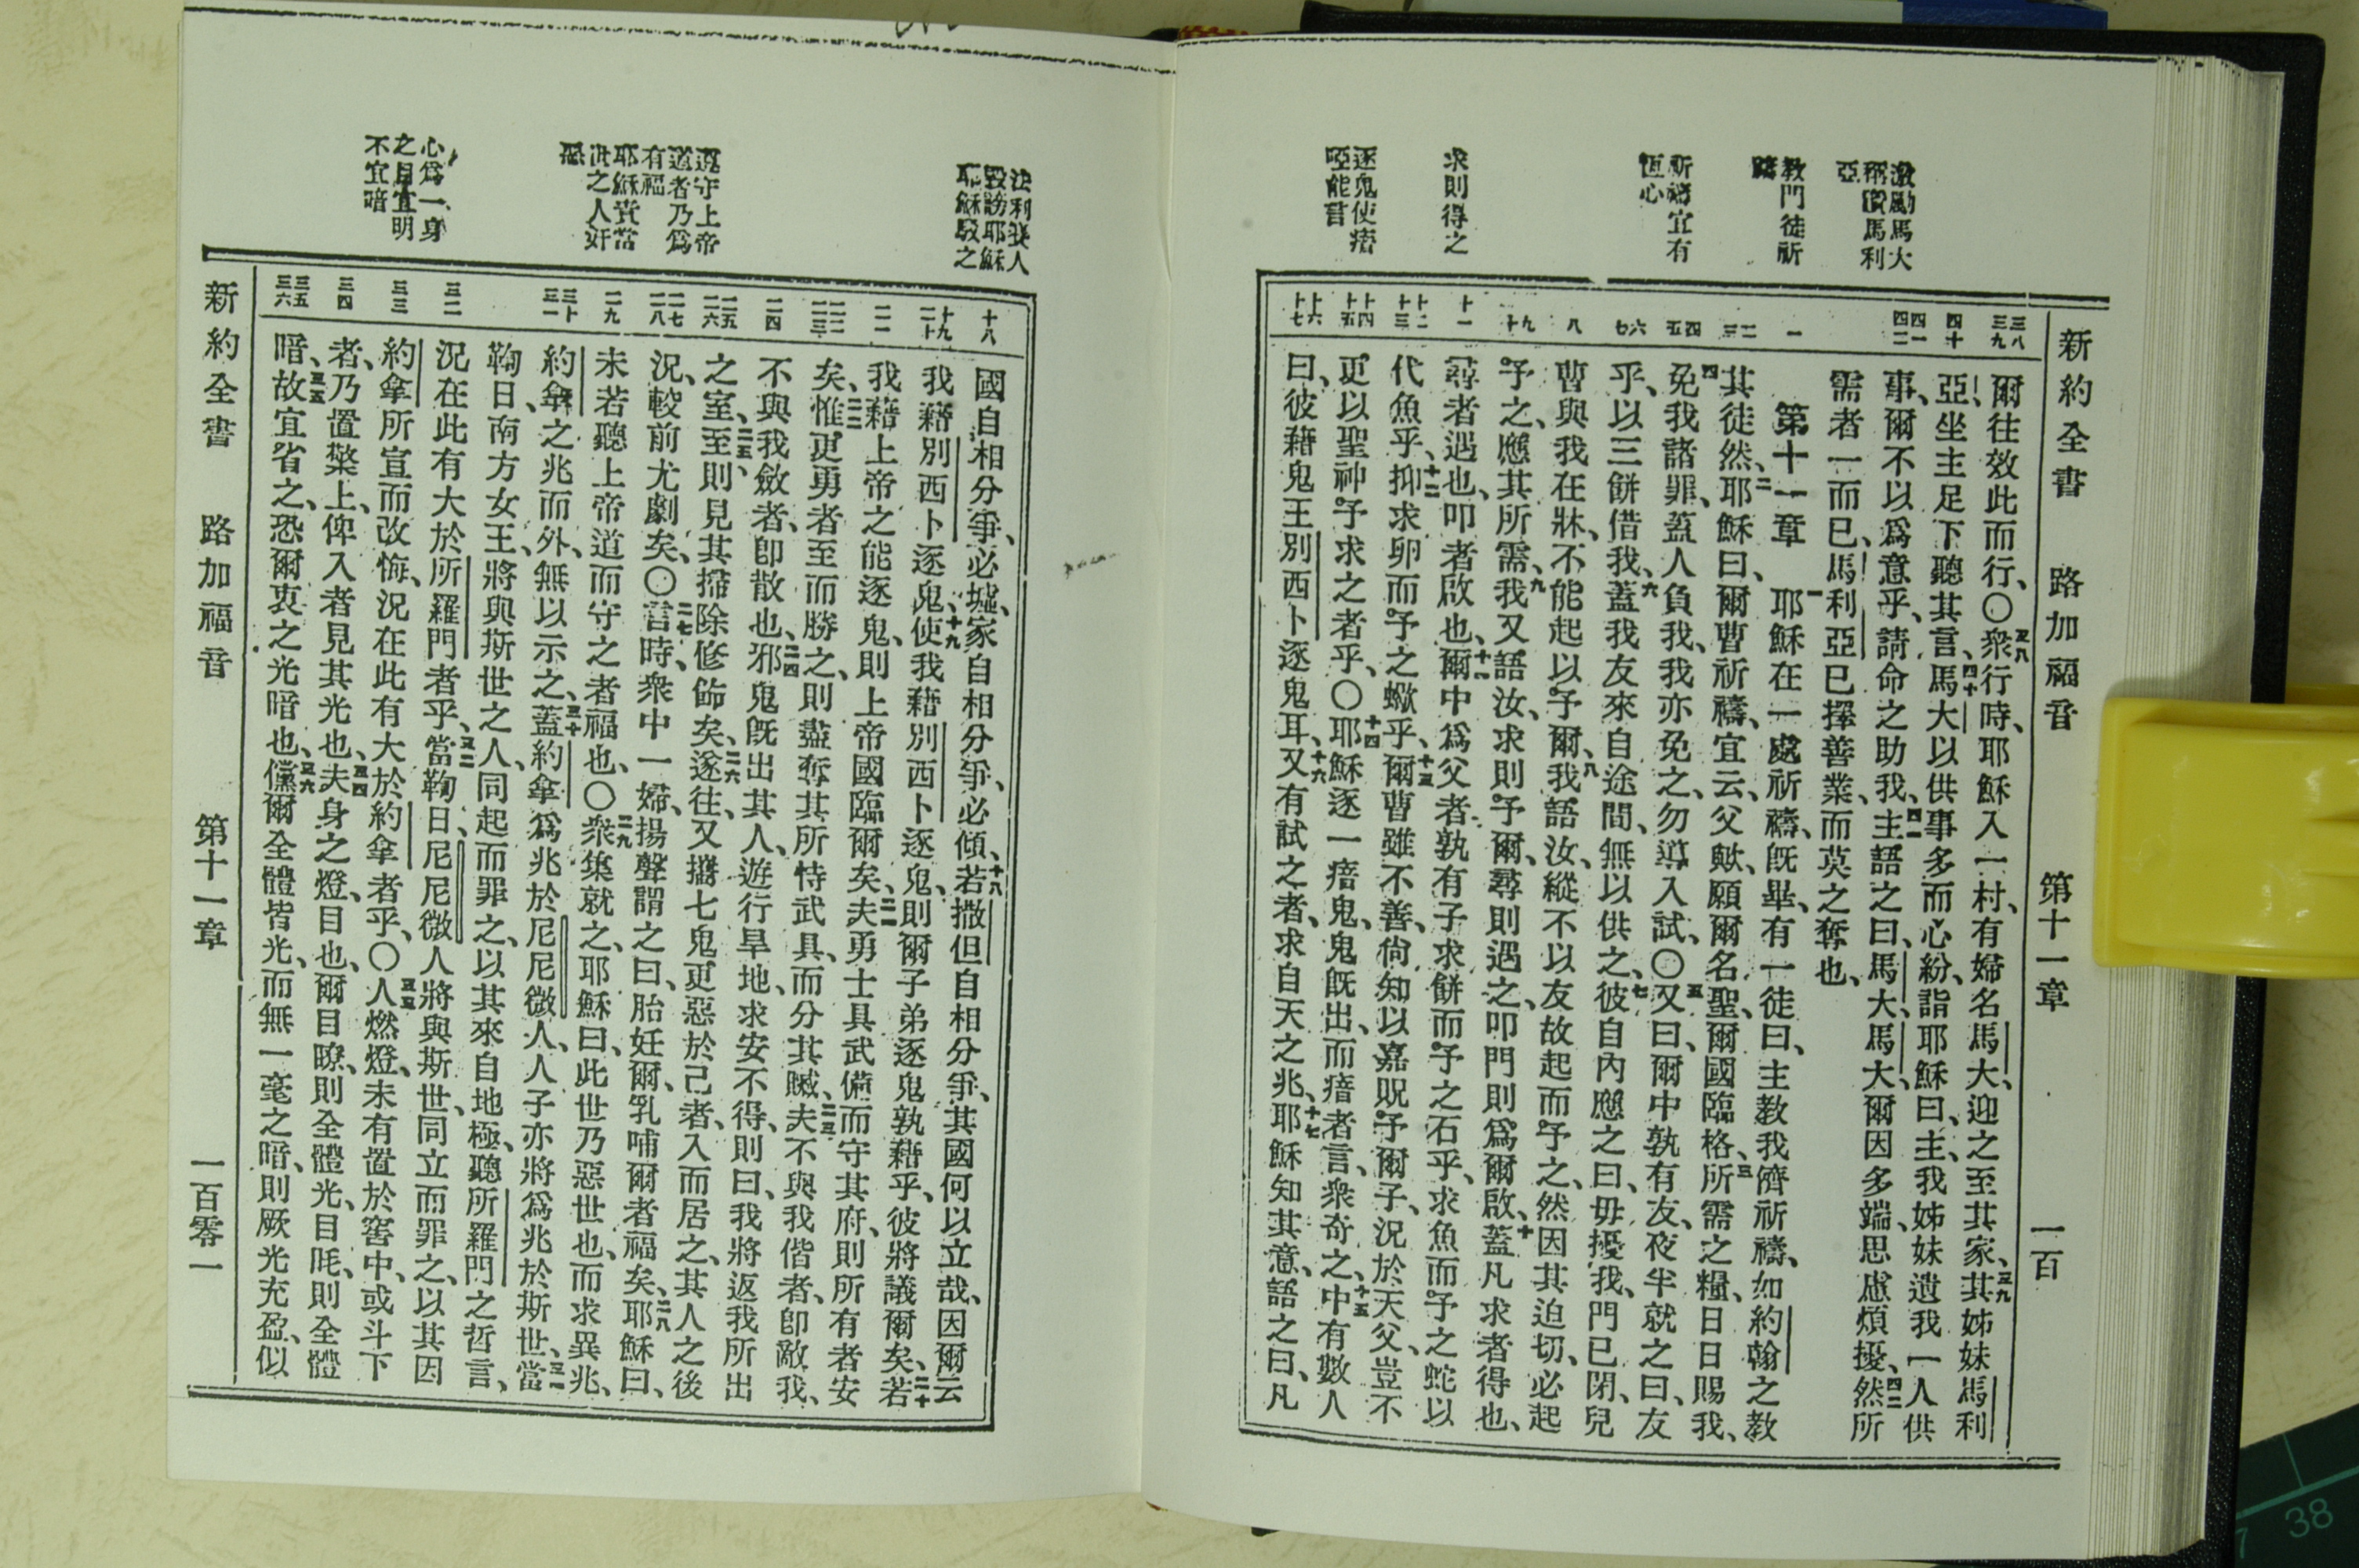 新約全書 路加福音 第十一章 一百
激勵馬大
稱賛馬利
亞
教門徒祈
禱
祈禱宜有
恆心
求則得之
逐鬼使瘖
啞能言
三八
三九
四十
四一
四二
一
二
三
四
五
六
七
八
九
十
十一
十二
十三
十四
十五
十六
十七
爾往效此而行、〇三八衆行時、耶穌入一村、有婦名馬大、迎之至其家、三九其姊妹馬利
亞、坐主足下聽其言、四十馬大以供事多而心紛、詣耶穌曰、主、我姊妹遺我一人供
事、爾不以爲意乎、請命之助我、四一主語之曰、馬大、馬大、爾因多端、思慮煩擾、四二然所
需者一而已、馬利亞已擇善業、而莫之奪也、
第十一章 一耶穌在一處祈禱、既畢、有一徒曰、主教我儕祈禱、如約翰之教
其徒然、二耶穌曰、爾曹祈禱、宜云、父歟、願爾名聖、爾國臨格、三所需之糧、日日賜我、
四免我諸罪、蓋人負我、我亦免之、勿導入試、〇五又曰、爾中孰有友、夜半就之曰、友
乎、以三餅借我、六蓋我友來自途間、無以供之、七彼自內應之曰、毋擾我、門已閉、兒
曹與我在牀、不能起以予爾、八我語汝、縱不以友故起而予之、然因其迫切、必起
予之、應其所需、九我又語汝、求則予爾、尋則遇之、叩門則爲爾啟、十蓋凡求者得也、
尋者遇也、叩者啟也、十一爾中爲父者、孰有子求餅而予之石乎、求魚而予之蛇以
代魚乎、十二抑求卵而予之蠍乎、十三爾曹雖不善、尙知以嘉貺予爾子、況於天父、豈不
更以聖神予求之者乎、〇十四耶穌逐一瘖鬼、鬼既出、而瘖者言、衆奇之、十五中有數人
曰、彼藉鬼王別西卜逐鬼耳、十六又有試之者、求自天之兆、十七耶穌知其意、語之曰、凡
法利賽人
毀謗耶穌
耶穌駁之
遵守上帝
道者乃爲
有福
耶穌責當
世之人奸
惡
心爲一身
之目宜明
不宜暗
十八
十九
二十
二一
二二
二三
二四
二五
二六
二七
二八
二九
三十
三一
三二
三三
三四
三五
三六
國自相分爭、必墟、家自相分爭、必傾、十八若撒但自相分爭、其國何以立哉、因爾云
我藉別西卜逐鬼、十九使我藉別西卜逐鬼、則爾子弟逐鬼孰藉乎、彼將議爾矣、二十若
我藉上帝之能逐鬼、則上帝國臨爾矣、二一夫勇士具武備而守其府、則所有者安
矣、二二惟更勇者至而勝之、則盡奪其所恃武具、而分其贓、二三夫不與我偕者、卽敵我、
不與我斂者、卽散也、二四邪鬼既出其人、遊行旱地、求安不得、則曰、我將返我所出
之室、二五至則見其掃除修飾矣、二六遂往、又攜七鬼更惡於己者、入而居之、其人之後
況、較前尤劇矣、〇二七言時、衆中一婦、揚聲謂之曰、胎妊爾、乳哺爾者福矣、二八耶穌曰、
未若聽上帝道而守之者福也、〇二九衆集就之、耶穌曰、此世乃惡世也、而求異兆、
約拿之兆而外、無以示之、三十蓋約拿爲兆於尼尼微人、人子亦將爲兆於斯世、三一當
鞫日、南方女王、將與斯世之人、同起而罪之、以其來自地極、聽所羅門之哲言、
況在此有大於所羅門者乎、三二當鞫日、尼尼微人將與斯世、同立而罪之、以其因
約拿所宣而改悔、況在此有大於約拿者乎、〇三三人燃燈、未有置於窖中、或斗下
者、乃置檠上、俾入者見其光也、三四夫身之燈、目也、爾目瞭、則全體光、目眊、則全體
暗、三五故宜省之、恐爾衷之光暗也、三六儻爾全體皆光、而無一毫之暗、則厥光充盈、似
新約全書 路加福音 第十一章 一百零一
38